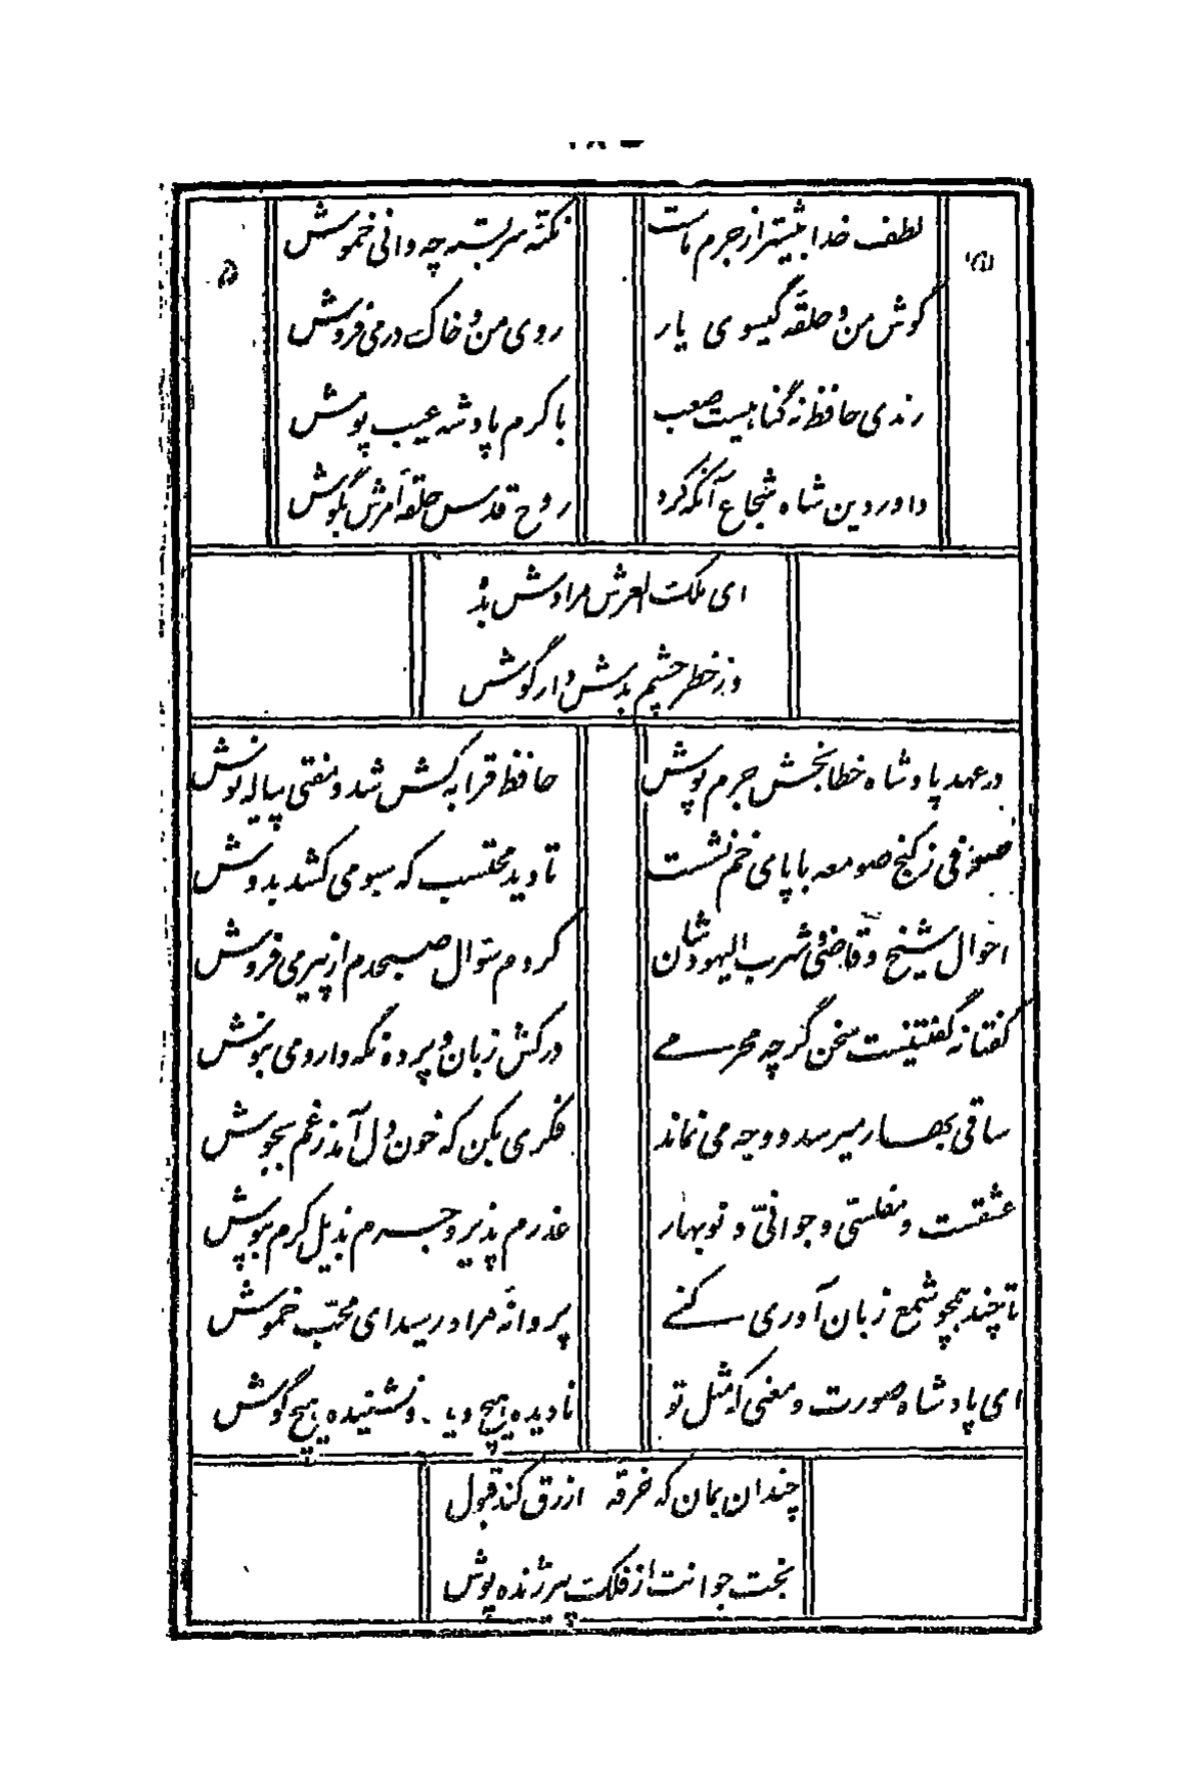 لطف خدا بیشتر از جرم ماست
نکته سربسته چه دانی خموش
گوش من و حلقه گیسوی یار
روی من و خاک در می فروش
رندی حافظ نه گناهیست صعب
با کرم پادشه عیب پوش
داور دین شاه شجاع آنکه کرد
روح قدس حلقه امرش بگوش
ای ملک العرش مرادش بده
وز خطر چشم بدش دار گوش
در عهد پادشاه خطابخش جرم پوش
حافظ قرابه کش شد و مفتی پیاله نوش
صوفی ز کنج صومعه با پای خم نشست
تا دید محتسب که سبو می کشد بدوش
احوال شیخ و قاضی و شرب الیهودشان
کردم سؤال صبحدم از پیر می فروش
گفتا نه گفتنیست سخن گرچه محرمے
درکش زبان و پرده نگه دار و می بنوش
ساقی بهار میرسد و وجه می نماند
فکری بکن که خون دل آمد ز غم بجوش
عشقست و مفلسی و جوانی و نوبهار
عذرم پذیر و جرم بذیل کرم بپوش
تا چند همچو شمع زبان آوری کنے
پروانه مراد رسید ای محب خموش
ای پادشاه صورت و معنی که مثل تو
نادیده هیچ دیده و نشنیده هیچ گوش
چندان بمان که خرقه ازرق کند قبول
بخت جوانت از فلک پیر ژنده پوش